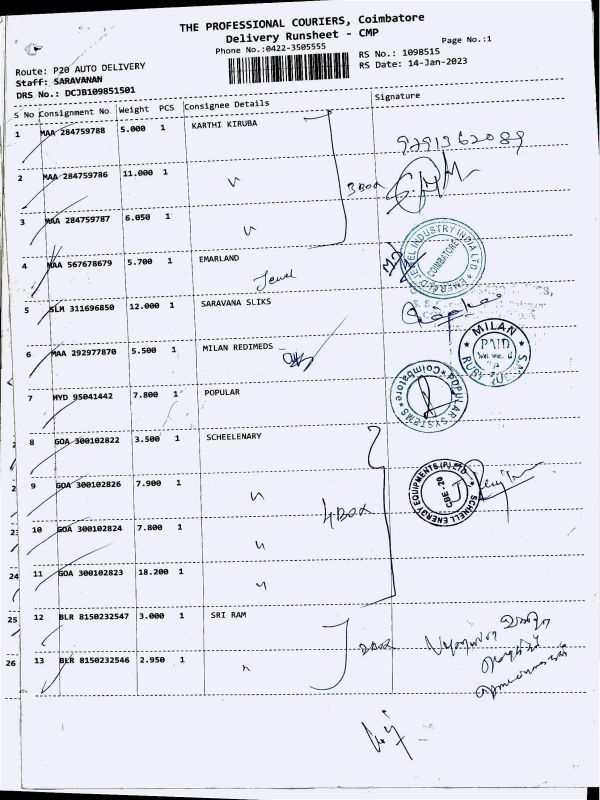 THE PROFESSIONAL COURIERS, Coimbatore
Delivery Runsheet - CMP
Phone No.:0422-3505555
Page No.:1
RS No.: 1098515
RS Date: 14-Jan-2023
Route: P20 AUTO DELIVERY
Staff: SARAVANAN
DRS No.: DCJB109851501
S No Consignment No Weight PCS Consignee Details Signature
1 MAA 284759788 5.000 1 KARTHI KIRUBA
2 MAA 284759786 11.000 1 〃 3 Box
3 MAA 284759787 6.050 1 〃
4 MAA 567678679 5.700 1 EMARLAND
Jewel
EMERALD JEWEL INDUSTRY INDIA LTD
COIMBATORE
5 SLM 311696850 12.000 1 SARAVANA SLIKS
6 MAA 292977870 5.500 1 MILAN REDIMEDS
MILAN
PAID
7 HYD 95041442 7.800 1 POPULAR
POPULAR SYSTEMS
Coimbatore
8 GOA 300102822 3.500 1 SCHEELENARY
9 GOA 300102826 7.900 1 〃 4 Box
SCHNELL ENERGY EQUIPMENTS (P) LTD
CBE-20
10 GOA 300102824 7.800 1 〃
11 GOA 300102823 18.200 1 〃
12 BLR 8150232547 3.000 1 SRI RAM
13 BLR 8150232546 2.950 1 〃
23
24
25
26